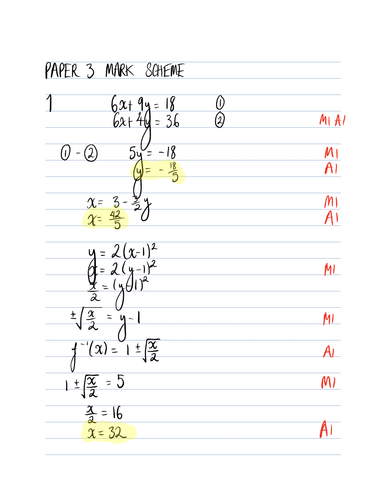 PAPER 3 MARK SCHEME
1 6x + 9y = 18 ①
6x + 4y = 36 ② M1 A1
① - ② 5y = -18 M1
y = - 18/5 A1
x = 3 - 3/2 y M1
x = 42/5 A1
y = 2(x-1)²
x = 2(y-1)² M1
x/2 = (y-1)²
±√(x/2) = y - 1 M1
f⁻¹(x) = 1 ± √(x/2) A1
1 ± √(x/2) = 5 M1
x/2 = 16
x = 32 A1